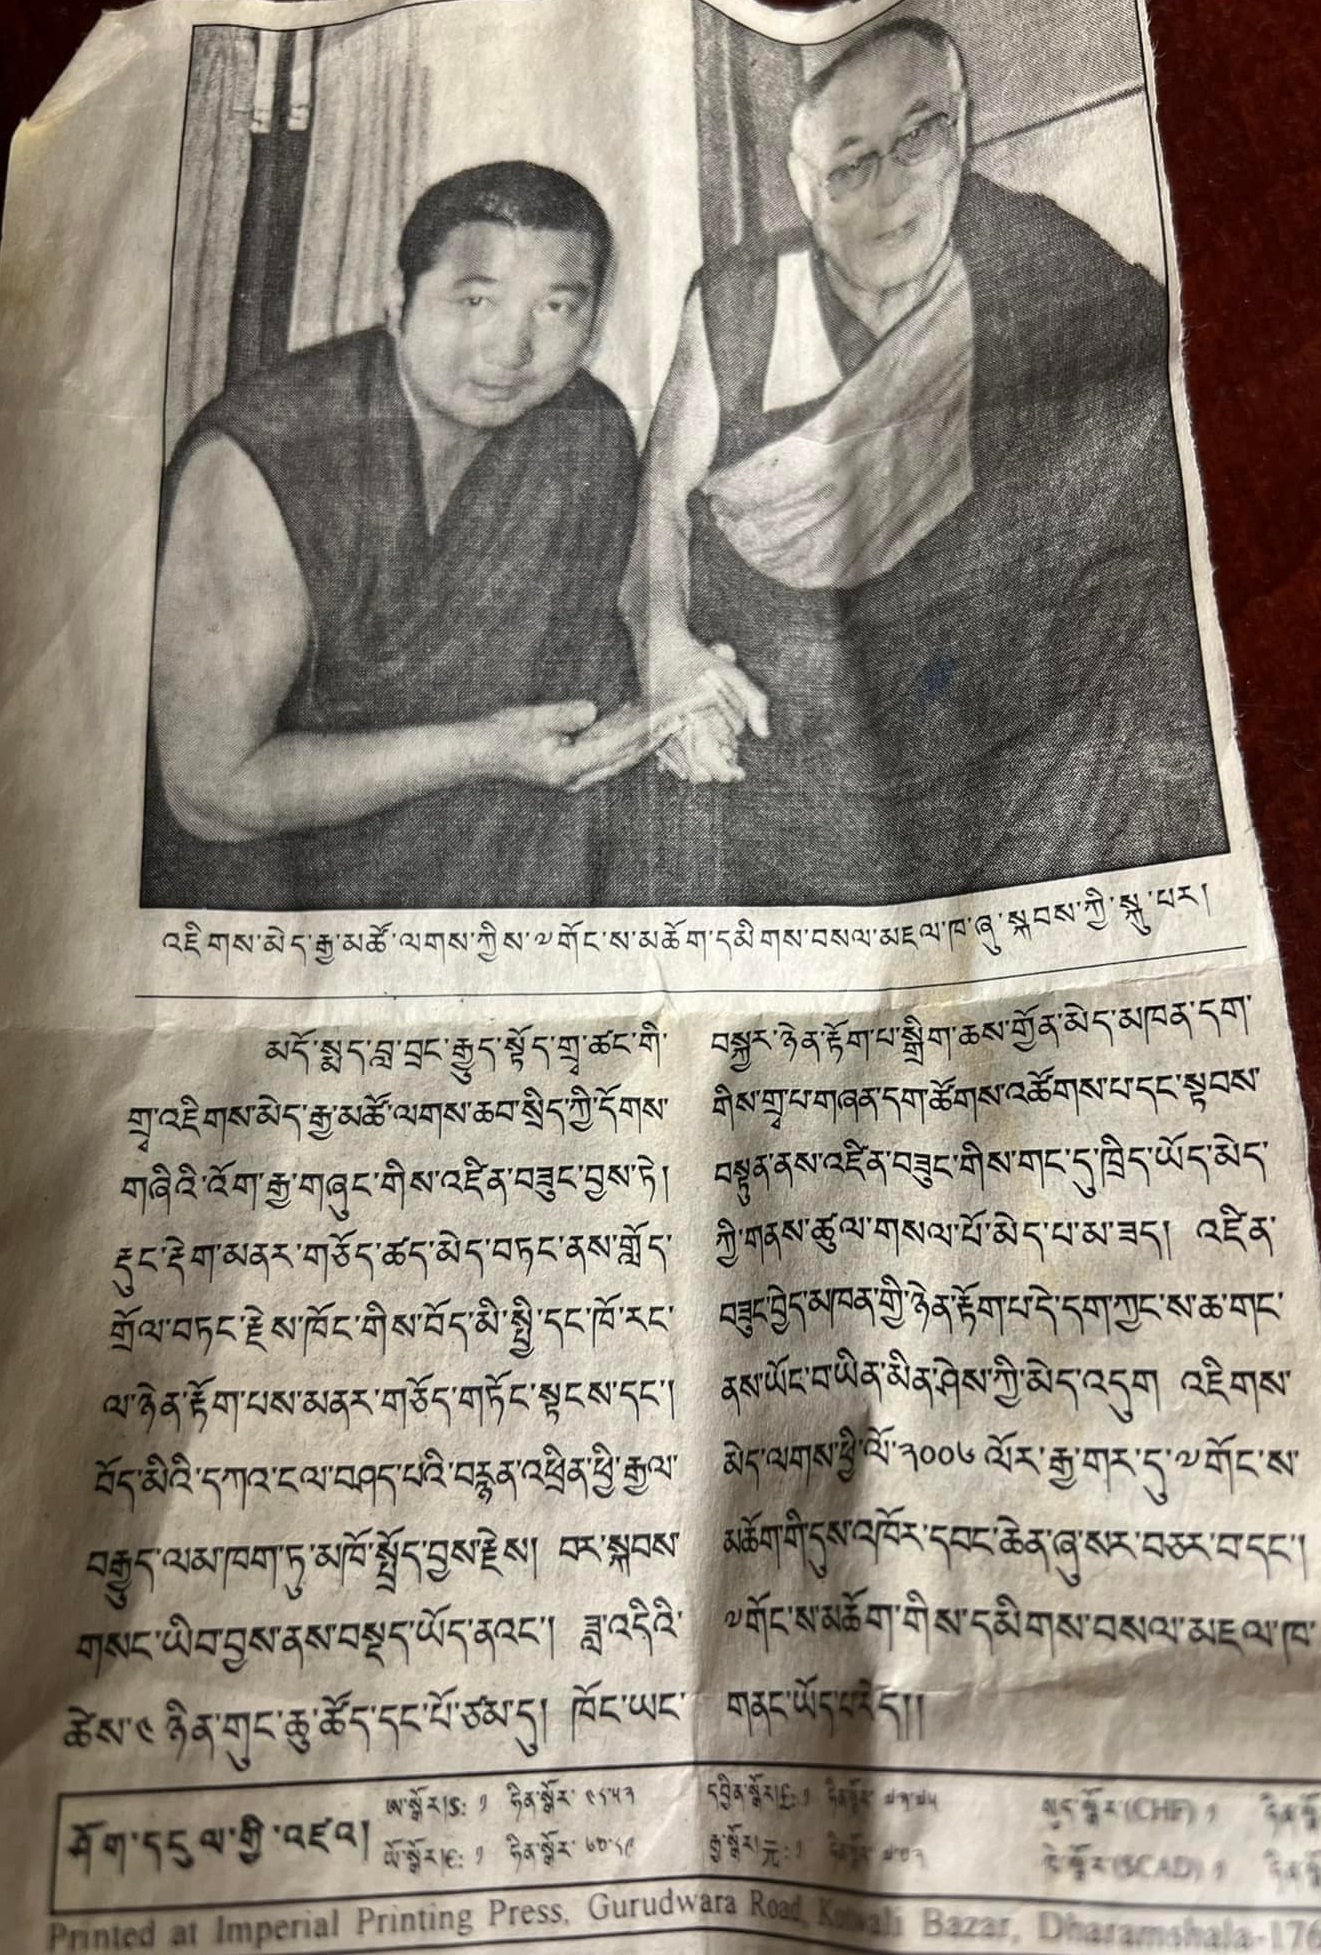 འཇིགས་མེད་རྒྱ་མཚོ་ལགས་ཀྱིས་༧གོང་ས་མཆོག་དམིགས་བསལ་མཇལ་ཁ་ཞུ་སྐབས་ཀྱི་སྐུ་པར།
མདོ་སྨད་བླ་བྲང་རྒྱུད་སྟོད་གྲྭ་ཚང་གི་
གྲྭ་འཇིགས་མེད་རྒྱ་མཚོ་ལགས་ཆབ་སྲིད་ཀྱི་དོགས་
གཞིའི་འོག་རྒྱ་གཞུང་གིས་འཛིན་བཟུང་བྱས་ཏེ།
རྡུང་རྡེག་མནར་གཅོད་ཚད་མེད་བཏང་ནས་གློད་
གྲོལ་བཏང་རྗེས་ཁོང་གིས་བོད་མི་སྤྱི་དང་ཁོ་རང་
ལ་ཉེན་རྟོག་པས་མནར་གཅོད་གཏོང་སྟངས་དང་།
བོད་མིའི་དཀའ་ངལ་བཤད་པའི་བརྙན་འཕྲིན་ཕྱི་རྒྱལ་
བརྒྱུད་ལམ་ཁག་ཏུ་མཁོ་སྤྲོད་བྱས་རྗེས། བར་སྐབས་
གསང་ཡིབ་བྱས་ནས་བསྡད་ཡོད་ནའང་། ཟླ་འདིའི་
ཚེས་༩ ཉིན་གུང་ཆུ་ཚོད་དང་པོ་ཙམ་དུ། ཁོང་ཡང་
བསྐྱར་ཉེན་རྟོག་པ་སྒྲིག་ཆས་གྱོན་མེད་མཁན་དག་
གིས་གྲྭ་པ་གཞན་དག་ཚོགས་འཚོགས་པ་དང་སྟབས་
བསྟུན་ནས་འཛིན་བཟུང་གིས་གང་དུ་ཁྲིད་ཡོད་མེད་
ཀྱི་གནས་ཚུལ་གསལ་པོ་མེད་པ་མ་ཟད། འཛིན་
བཟུང་བྱེད་མཁན་གྱི་ཉེན་རྟོག་པ་དེ་དག་ཀྱང་ས་ཆ་གང་
ནས་ཡོང་བ་ཡིན་མིན་ཤེས་ཀྱི་མེད་འདུག འཇིགས་
མེད་ལགས་ཕྱི་ལོ་༢༠༠༦ ལོར་རྒྱ་གར་དུ་༧གོང་ས་
མཆོག་གི་དུས་འཁོར་དབང་ཆེན་ཞུ་སར་བཅར་བ་དང་།
༧གོང་ས་མཆོག་གིས་དམིགས་བསལ་མཇལ་ཁ་
གནང་ཡོད་པ་རེད།།
ཤོག་དངུལ་གྱི་འཛའ།
ཨ་སྒོར།$: ༡ ཧིན་སྒོར་ དབྱིན་སྒོར།£: ༡ སུད་སྒོར་(CHF) ༡
ཡོ་སྒོར།€: ༡ ཧིན་སྒོར་ རྒྱ་སྒོར།元: ༡ (SCAD) ༡
Printed at Imperial Printing Press, Gurudwara Road, Kotwali Bazar, Dharamshala-176